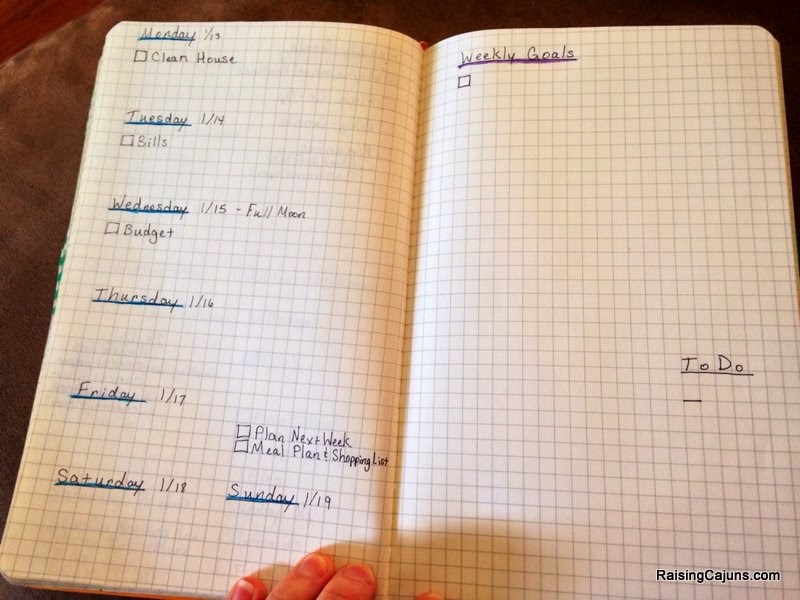 Monday 1/13
Clean House
Tuesday 1/14
Bills
Wednesday 1/15 - Full Moon
Budget
Thursday 1/16
Friday 1/17
Plan Next Week
Meal Plan & Shopping List
Saturday 1/18
Sunday 1/19
Weekly Goals
To Do
RaisingCajuns.com